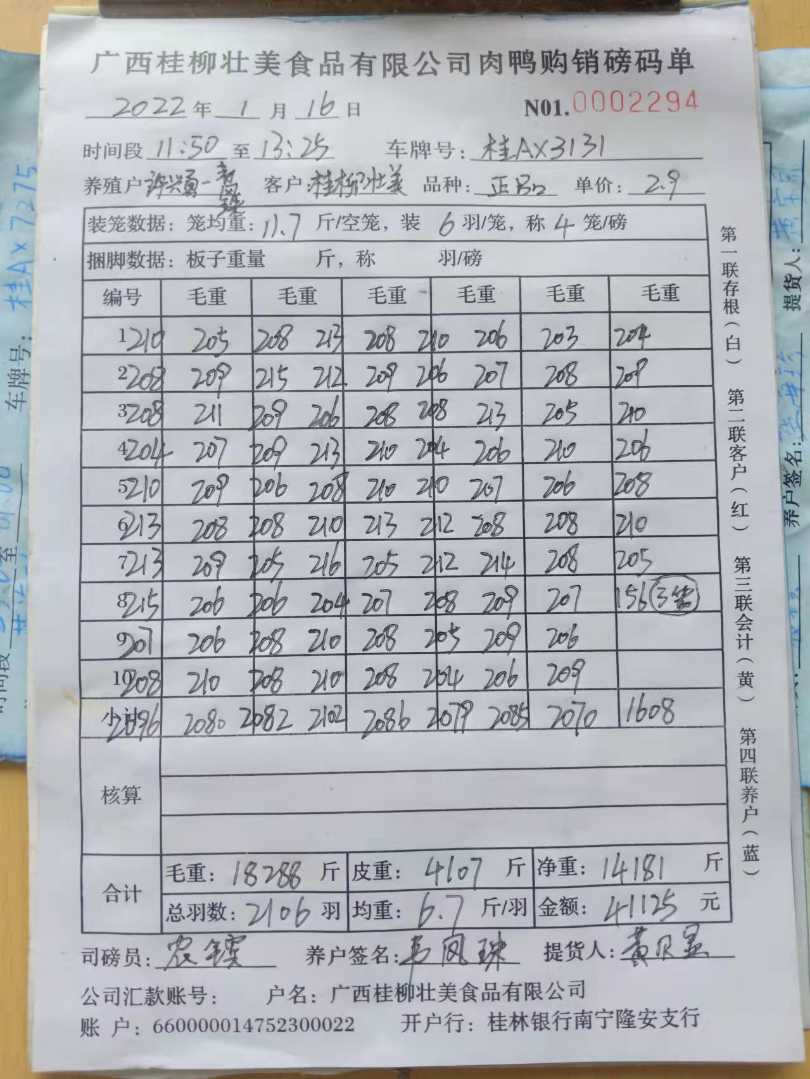 广西桂柳壮美食品有限公司肉鸭购销磅码单
2022年 1 月 16 日 N01.0002294
时间段 11:50 至 13:25 车牌号: 桂AX3131
养殖户 客户: 桂柳壮美 品种: 正品 单价: 2.9
装笼数据: 笼均重: 11.7 斤/空笼, 装 6 羽/笼, 称 4 笼/磅
捆脚数据: 板子重量 斤, 称 羽/磅
编号 毛重 毛重 毛重 毛重 毛重
1 210 205 208 213 208 210 206 203 204
2 208 209 215 212 209 206 207 208 209
3 208 211 209 206 208 208 213 205 210
4 204 207 209 213 210 204 206 210 206
5 210 209 206 208 210 210 207 206 208
6 213 208 208 210 213 212 208 208 210
7 213 209 205 216 205 212 214 208 205
8 215 206 206 204 207 208 209 207 156 3笼
9 207 206 208 210 208 205 209 206
10 208 210 208 210 208 204 206 209
小计 2096 2080 2082 2102 2086 2079 2085 2070 1608
核算
合计 毛重: 18288 斤 皮重: 4107 斤 净重: 14181 斤
总羽数: 2106 羽 均重: 6.7 斤/羽 金额: 41125 元
司磅员: 养户签名: 韦凤珠 提货人:
公司汇款账号: 户名: 广西桂柳壮美食品有限公司
账 户: 660000014752300022 开户行: 桂林银行南宁隆安支行
第一联存根(白) 第二联客户(红) 第三联会计(黄) 第四联养户(蓝)
车牌号: 桂AX7275
时间段 至
提货人:
养户签名: